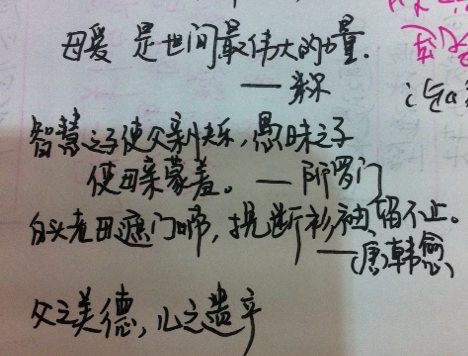 母爱 是世间最伟大的力量.
——米尔
智慧之子使父亲快乐,愚昧之子
使母亲蒙羞。——所罗门
白头老母遮门啼,挽断衫袖留不止。
——唐,韩愈
父之美德,儿之遗产